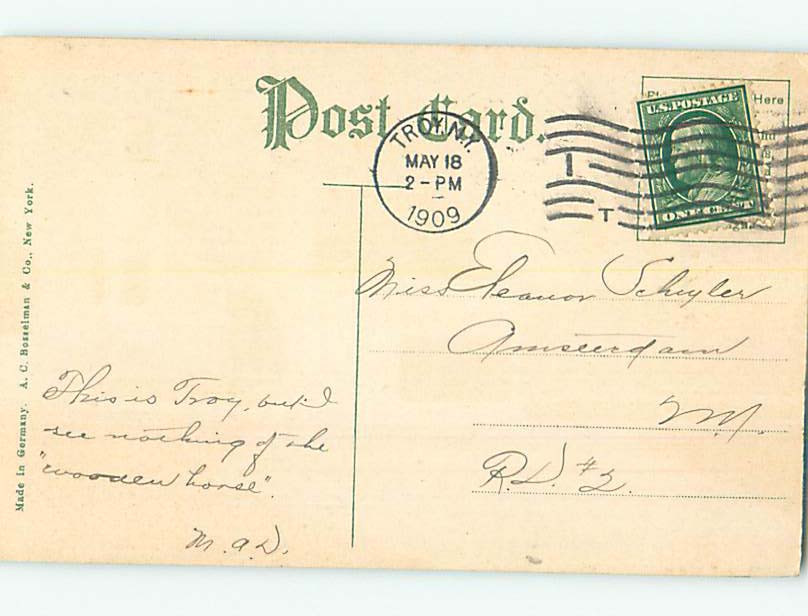 Post Card.
Here
U.S. POSTAGE
ONE CENT
TROY, N.Y.
MAY 18
2-PM
1909
T
Miss Eleanor Schuyler
Amsterdam
R.D. #2.
This is Troy, but I
see nothing of the
"wooden horse".
M. A. D.
Made in Germany. A. C. Bosselman & Co., New York.